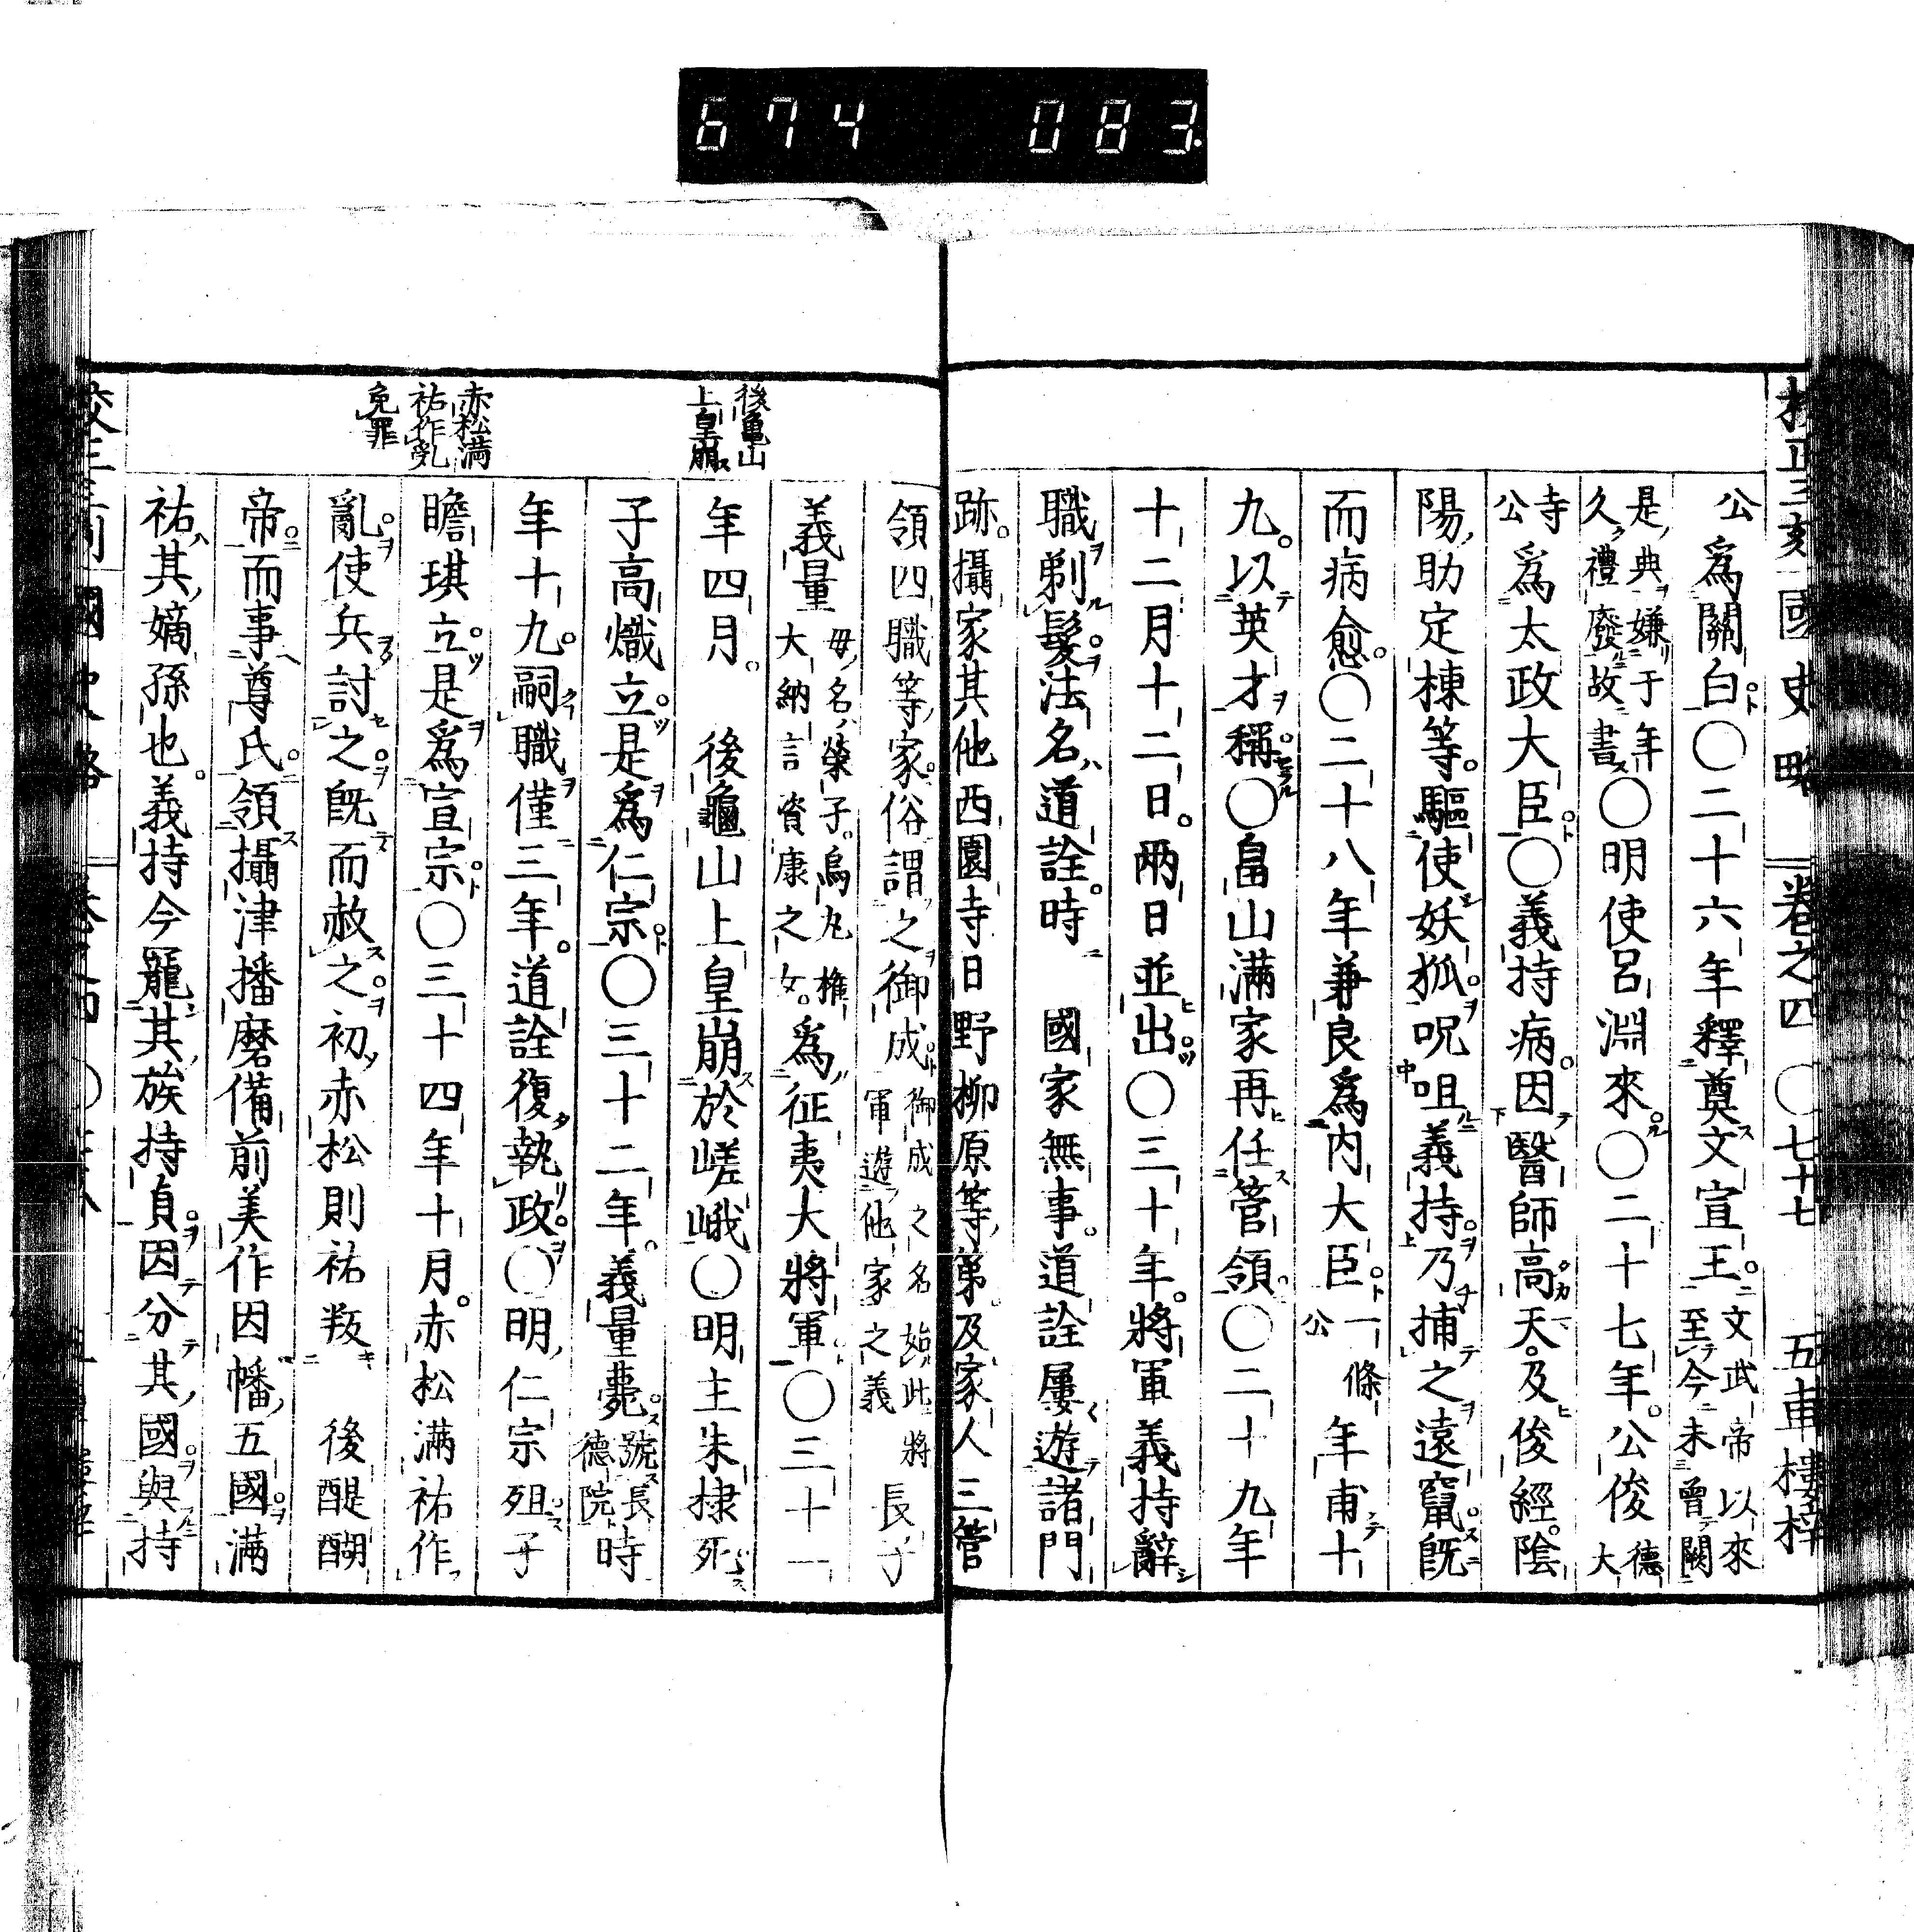 674 083
國史略 卷之四 〇七十七 五車樓梓
公爲關白〇二十六年釋奠文宣王 文武帝以來至今未曾闕
是典嫌于年久禮廢故書〇明使呂淵來〇二十七年公俊 德大
寺公爲太政大臣〇義持病因醫師高天及俊經陰
陽助定棟等驅使妖狐呪咀義持乃捕之遠竄既
而病愈〇二十八年兼良爲内大臣 一條公年甫十
九以英才稱〇畠山滿家再任管領〇二十九年
十二月十二日兩日並出〇三十年將軍義持辭
職剃髮法名道詮時 國家無事道詮屢遊諸門
跡攝家其他西園寺日野柳原等第及家人三管
領四職等家俗謂之御成 御成之名始此將軍遊他家之義 長子
義量 母名榮子烏丸權大納言資康之女 爲征夷大將軍〇三十一
年四月 後龜山上皇崩於嵯峨〇明主朱棣死
子高熾立是爲仁宗〇三十二年義量薨 號長德院 時
年十九嗣職僅三年道詮復執政〇明仁宗殂子
瞻琪立是爲宣宗〇三十四年十月赤松滿祐作
亂使兵討之既而赦之初赤松則祐叛 後醍醐
帝而事尊氏領攝津播磨備前美作因幡五國滿
祐其嫡孫也義持今寵其族持貞因分其國與持
後龜山
上皇崩
赤松満
祐作乱
免罪